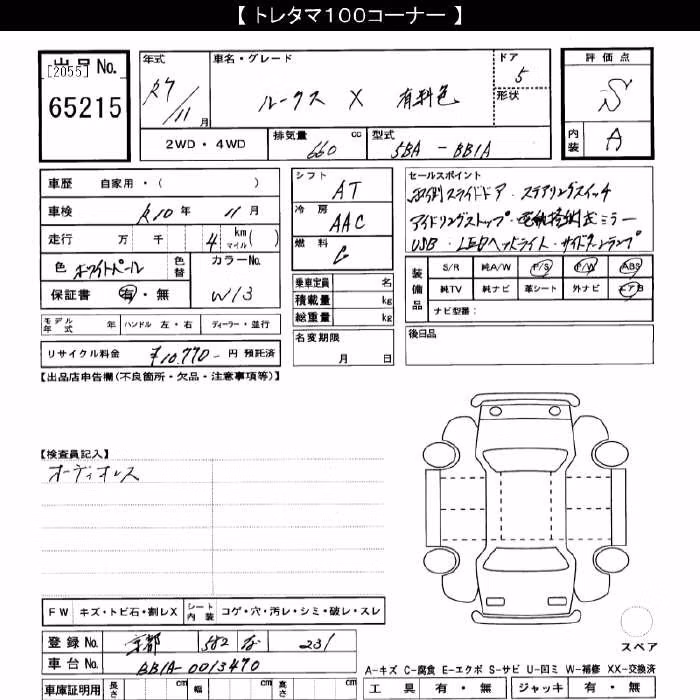 【 トレタマ100コーナー 】
出品 No.
[2055]
65215
年式 R7/11 月
車名・グレード ルークス X 有料色
ドア 5
形状
評価点 S
内装 A
2WD・4WD
排気量 660 cc
型式 5BA - BB1A
車歴 自家用・( )
車検 R10 年 11 月
走行 万 千 4 km マイル ( )
色 ホワイトパール
色替
カラーNo. W13
保証書 有・無
モデル年式 年 ハンドル 左・右 ディーラー・並行
リサイクル料金 ¥10,770- 円 預託済
シフト AT
冷房 AAC
燃料 G
乗車定員 名
積載量 kg
総重量 kg
名変期限 月 日
セールスポイント
両側スライドドア・ステアリングスイッチ
アイドリングストップ・電動格納式ミラー
USB・LEDヘッドライト・サイドターンランプ
装備品
S/R 純A/W P/S P/W ABS
純TV 純ナビ 革シート 外ナビ エアB
ナビ型番:
後日品
【出品店申告欄(不良箇所・欠品・注意事項等)】
【検査員記入】
オーディオレス
FW キズ・トビ石・割レX
シート内装 コゲ・穴・汚レ・シミ・破レ・スレ
登録 No. 京都 582 231
車台 No. BB1A-0013470
車庫証明用 長さ cm 幅 cm 高さ cm
スペア
A-キズ C-腐食 E-エクボ S-サビ U-凹ミ W-補修 XX-交換済
工具 有・無 ジャッキ 有・無